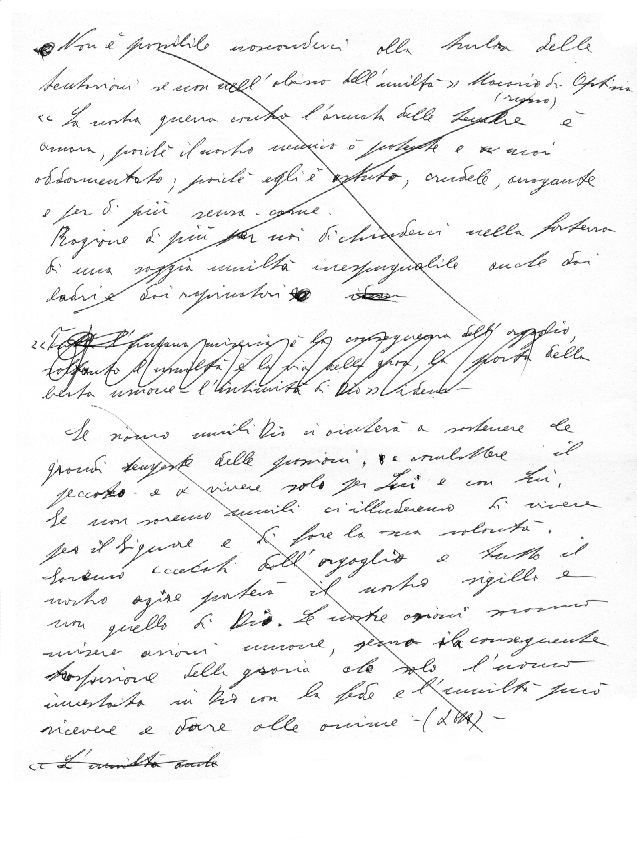 Non è possibile nasconderci alla furia delle
tentazioni se non nell'abisso dell'umiltà » Macario di Optina
« La nostra guerra contro l'armata delle tenebre è
(russo)
amara, poiché il nostro nemico è potente e mai
addormentato; poiché egli è astuto, crudele, arrogante
e per di più senza carne.
Ragione di più per noi di chiuderci nella fortezza
di una saggia umiltà inespugnabile anche dai
ladri e dai rapinatori idem
« l'umana miseria è la conseguenza dell'orgoglio,
soltanto l'umiltà è la via della gioia, la porta della
beata unione - l'intimità di Dio » idem -
Se siamo umili Dio ci aiuterà a sostenere le
grandi tempeste delle passioni, a combattere il
peccato e a vivere solo per Lui e con Lui,
Se non saremo umili ci illuderemo di vivere
per il Signore e di fare la sua volontà.
Saremo accecati dall'orgoglio e tutto il
nostro agire porterà il nostro sigillo e
non quello di Dio. Le nostre azioni saranno
misere azioni umane, senza la conseguente
trasfusione della grazia che solo l'uomo
innestato in Dio con la fede e l'umiltà può
ricevere e dare alle anime -
« L'umiltà anche